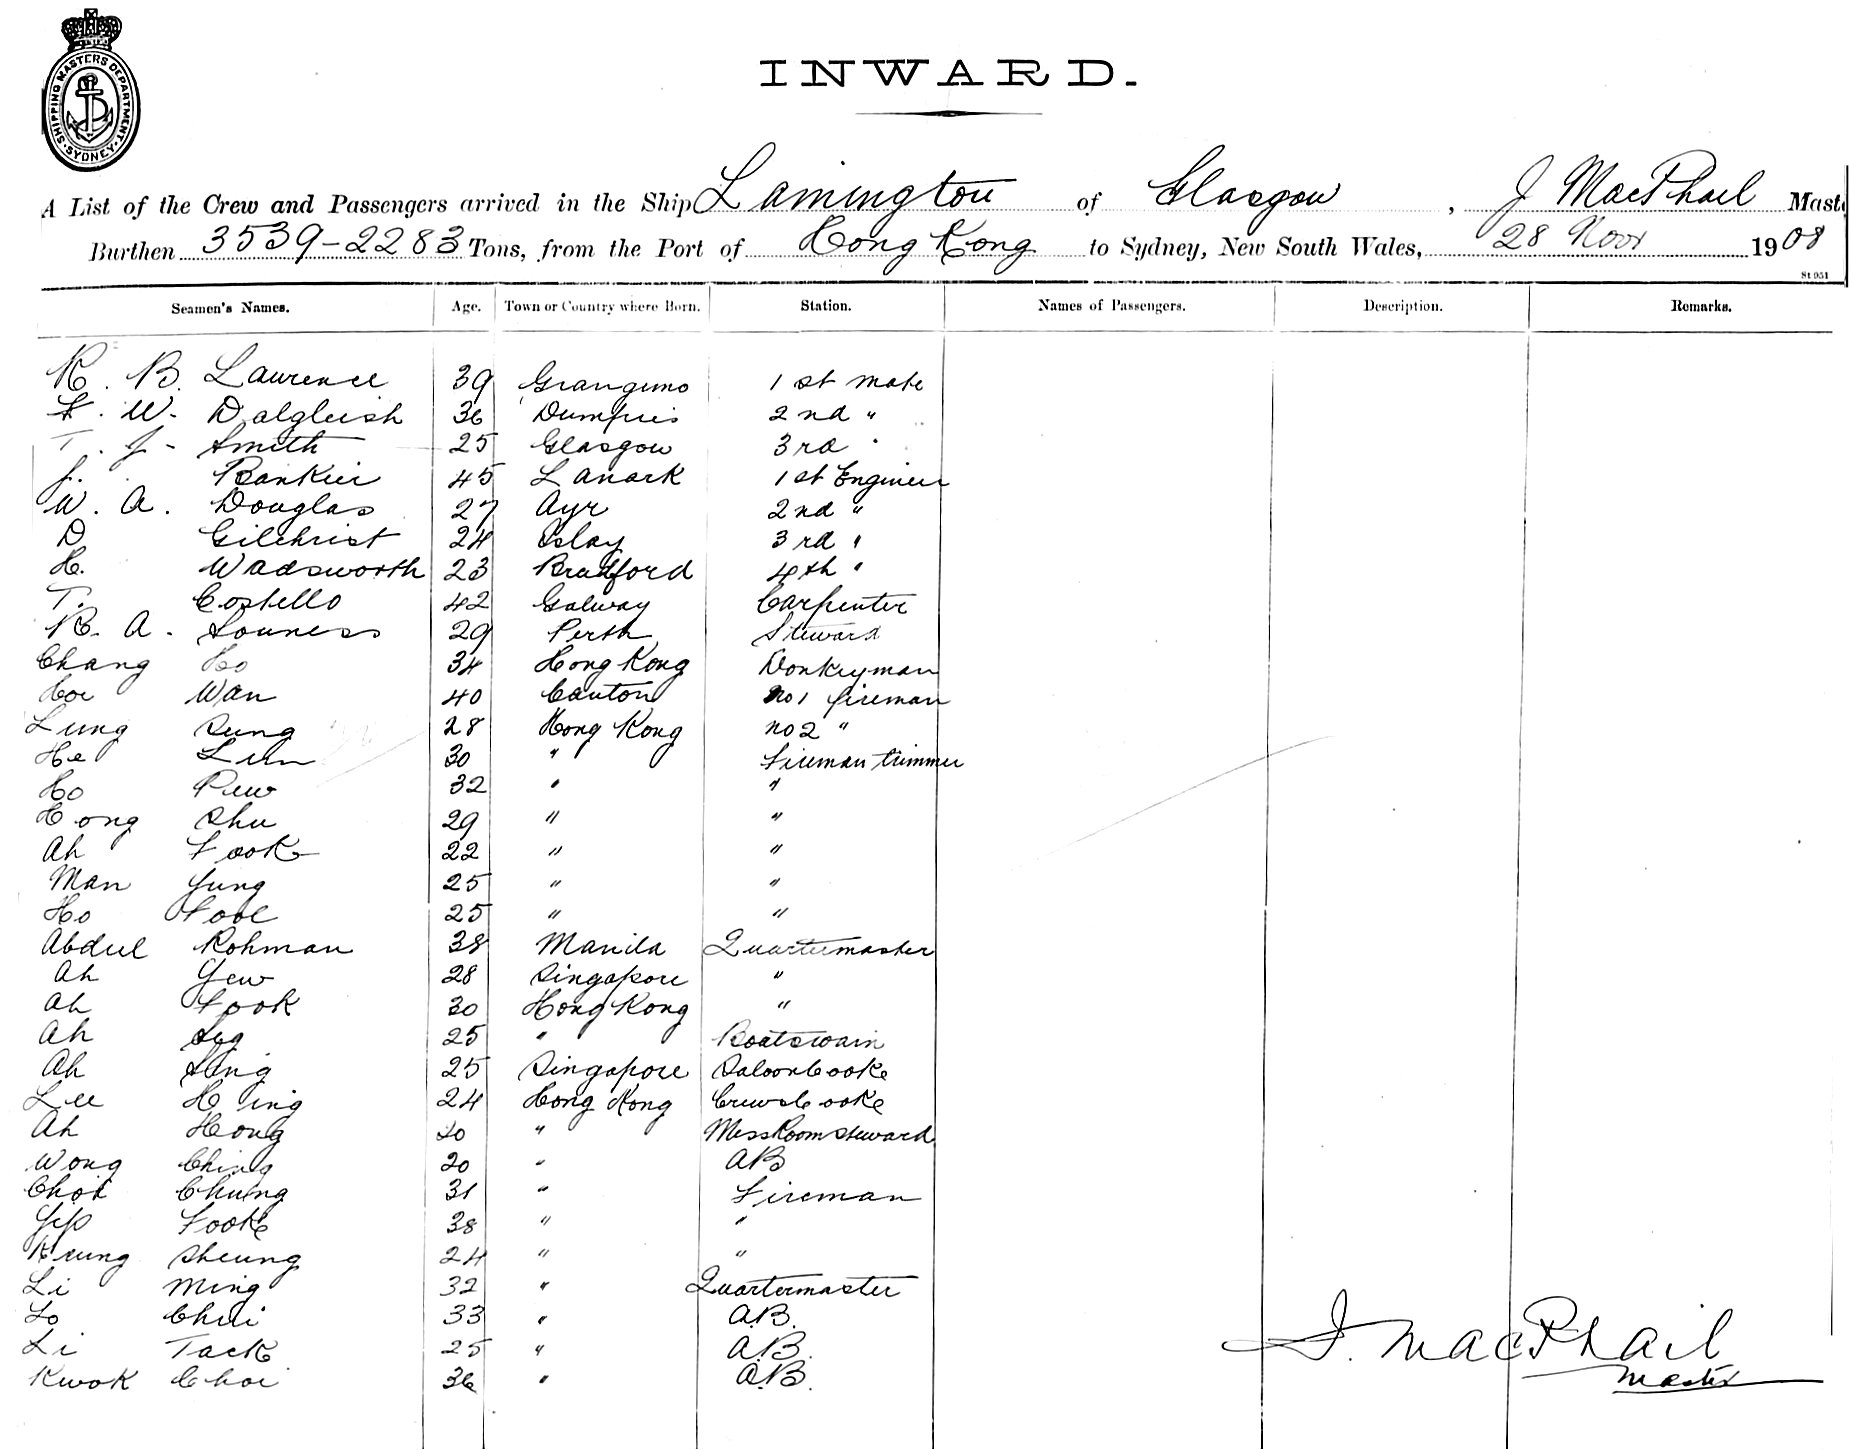 SHIPPING MASTERS DEPARTMENT. SYDNEY
INWARD.
A List of the Crew and Passengers arrived in the Ship Lamington of Glasgow, J MacPhail Maste
Burthen 3539-2283 Tons, from the Port of Hong Kong to Sydney, New South Wales, 28 Novr 1908
St 951
Seamen's Names. Age. Town or Country where Born. Station. Names of Passengers. Description. Remarks.
R. B. Laurence 39 1st mate
W. Dalgleish 36 Dumfries 2nd "
T. J. Smith 25 Glasgow 3rd "
J. Bankier 45 Lanark 1st Engineer
W. A. Douglas 27 Ayr 2nd "
D Gilchrist 24 Islay 3rd "
H. Wadsworth 23 Bradford 4th "
T. Costello 42 Galway Carpenter
R. A. Souness 29 Perth Steward
Chang Ho 34 Hong Kong Donkeyman
Hoi Wan 40 Canton No 1 fireman
Lung Sung 28 Hong Kong No 2 "
He Lun 30 " Fireman trimmer
Ho Pew 32 " "
Hong Shu 29 " "
Ah Fook 22 " "
Man Yung 25 " "
Ho 25 " "
Abdul Rohman 38 Manila Quartermaster
Ah Yew 28 Singapore "
Ah Fook 30 Hong Kong "
Ah 25 " Boatswain
Ah Sing 25 Singapore Saloon Cooke
Lee Hing 24 Hong Kong Crews Cooke
Ah Hong 20 " Mess Room Steward
Wong Ching 20 " AB
Choi Chung 31 " Fireman
Yip Fooke 38 " "
Keung Sheung 24 " "
Li Ming 32 " Quartermaster
Lo Chui 33 " A.B.
Li Tack 25 " A.B.
Kwok Choi 36 " A.B.
J. MacPhail
Master